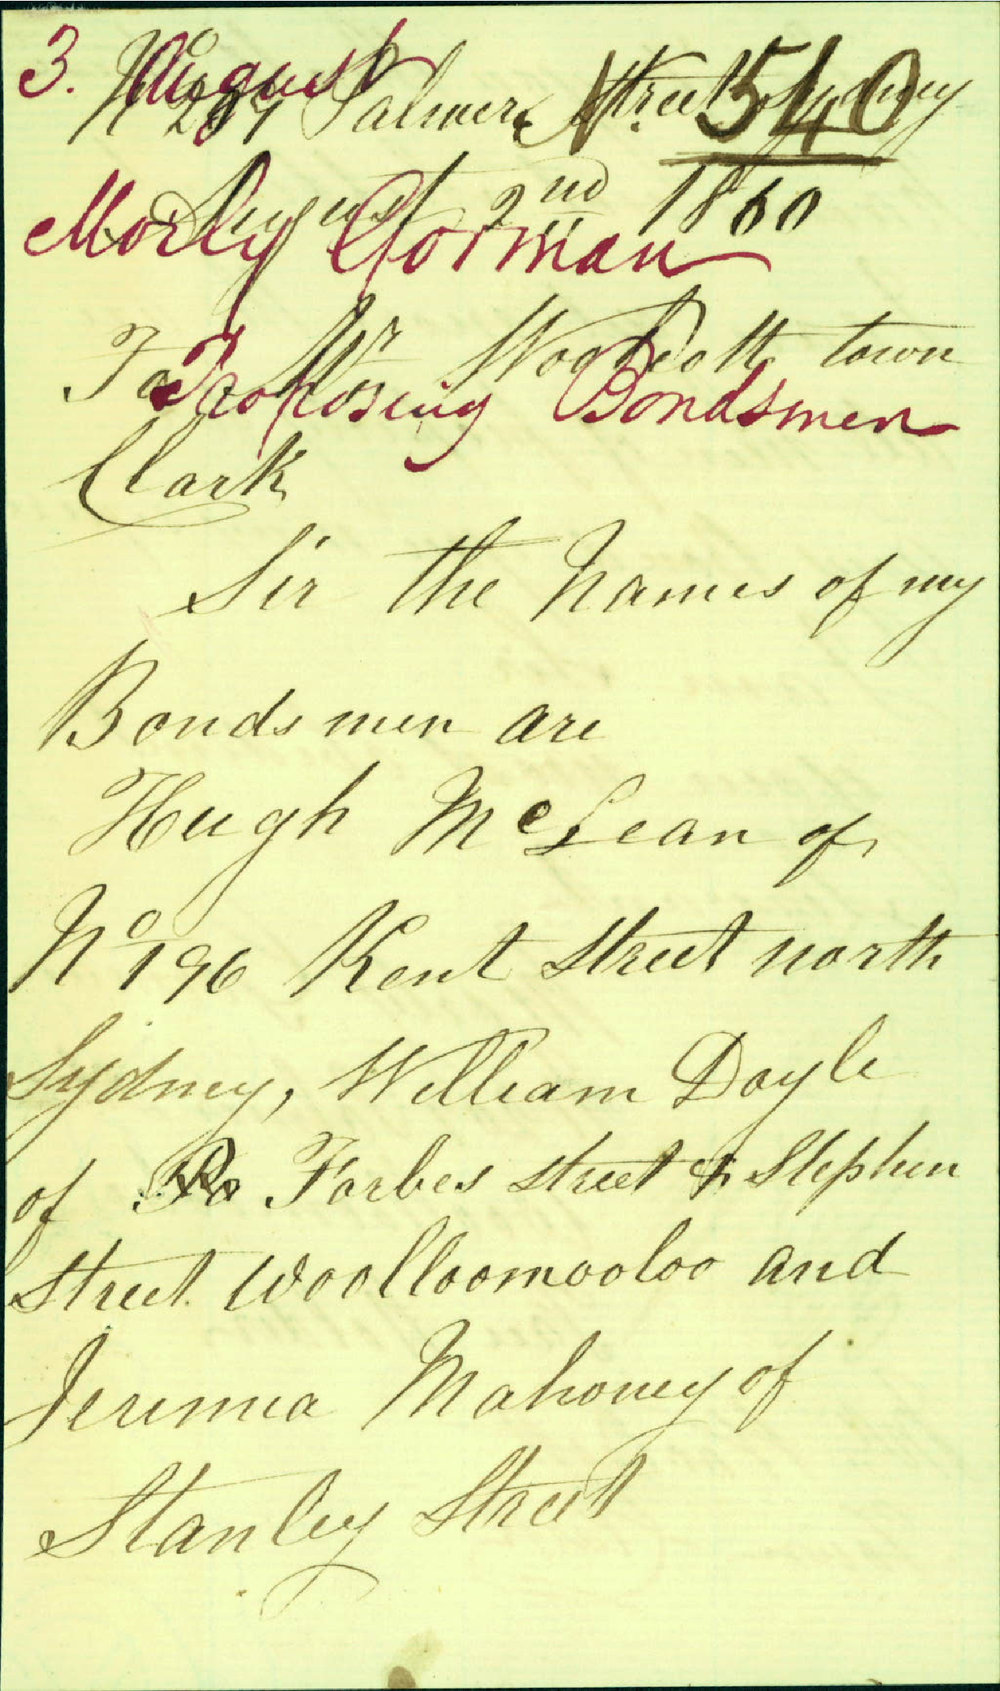 3. August
No. 540
No 289 Palmer Street Sydney
August 2nd 1860
Morly Gorman
To Mr Woolcott town
Proposing Bondsmen
Clark
Sir the Names of my
Bondsmen are
Hugh McLean of
No 196 Kent Street north
Sydney, William Doyle
of Forbes street & Stephen
Street Woolloomooloo and
Jeremia Mahoney of
Stanley Street